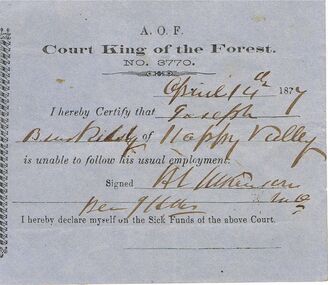 A. O. F.
Court King of the Forest.
NO. 3770.
April 14th 1877
I hereby Certify that Joseph
of Happy Valley
is unable to follow his usual employment.
Signed
I hereby declare myself on the Sick Funds of the above Court.